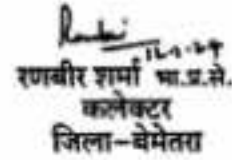 रणबीर शर्मा भा.प्र.से.
कलेक्टर
जिला-बेमेतरा